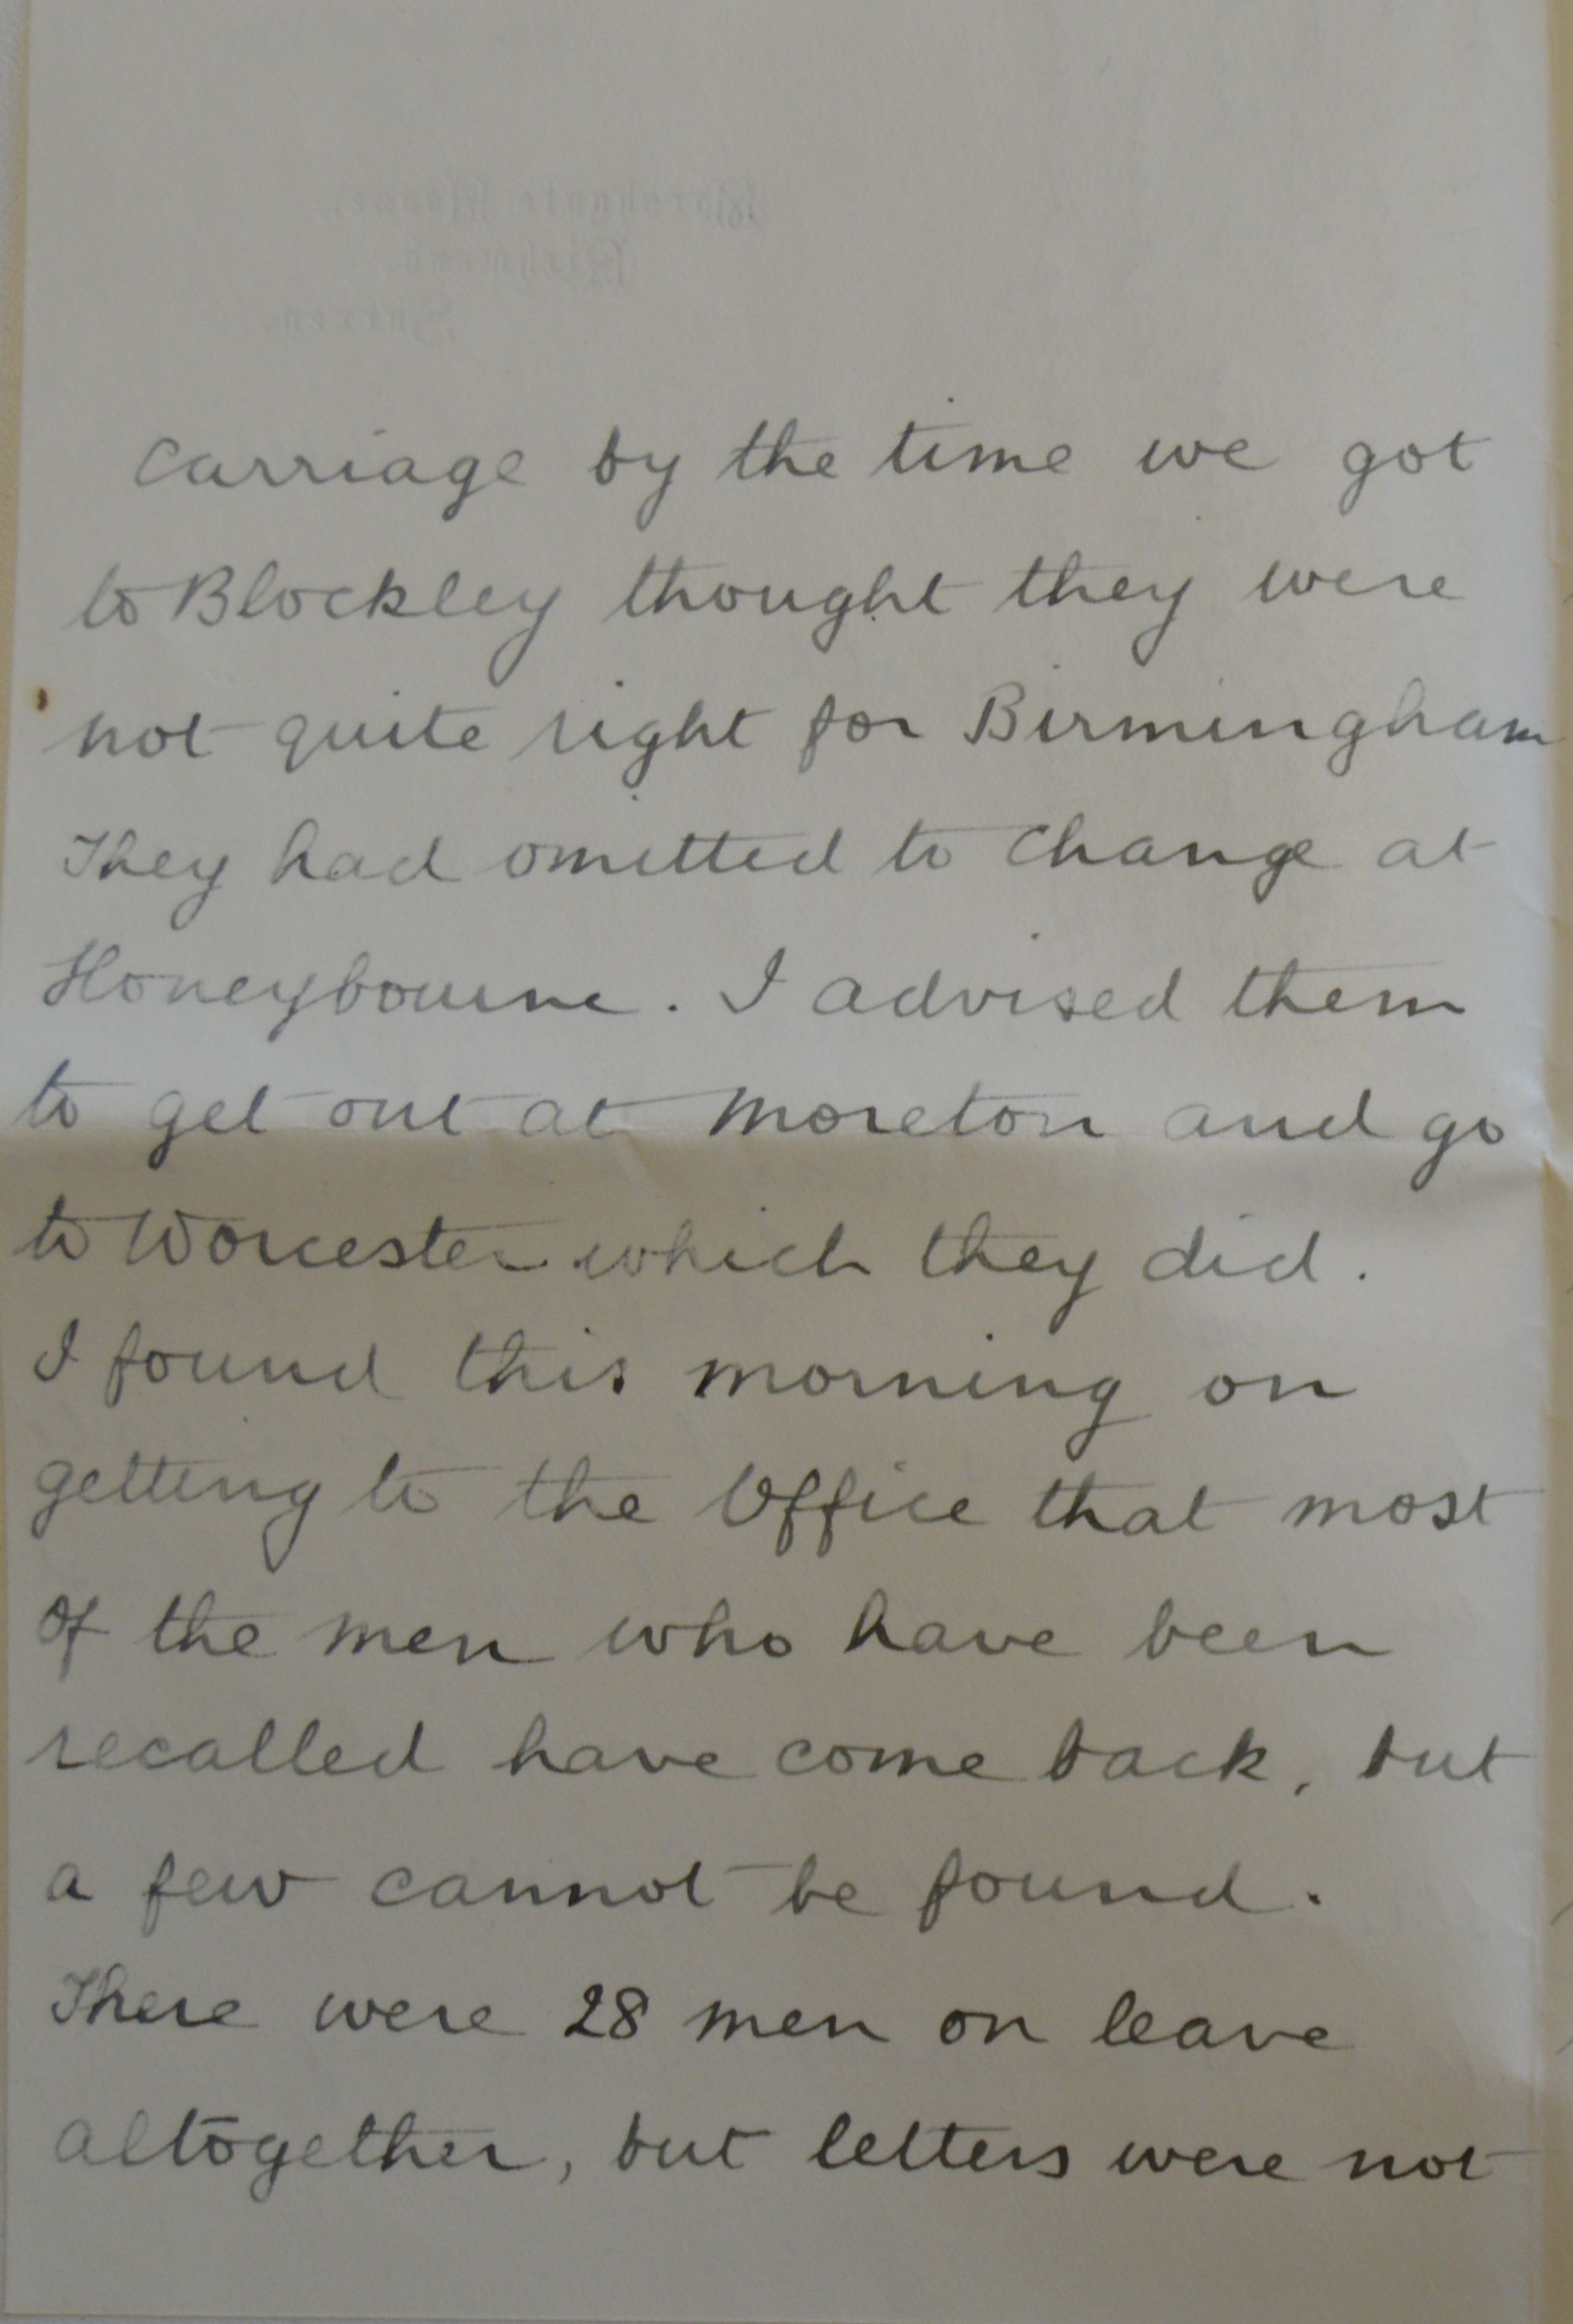 carriage by the time we got
to Blockley thought they were
not quite right for Birmingham
They had omitted to change at
Honeybourne. I advised them
to get out at Moreton and go
to Worcester which they did.
I found this morning on
getting to the Office that most
of the men who have been
recalled have come back, but
a few cannot be found.
There were 28 men on leave
altogether, but letters were not